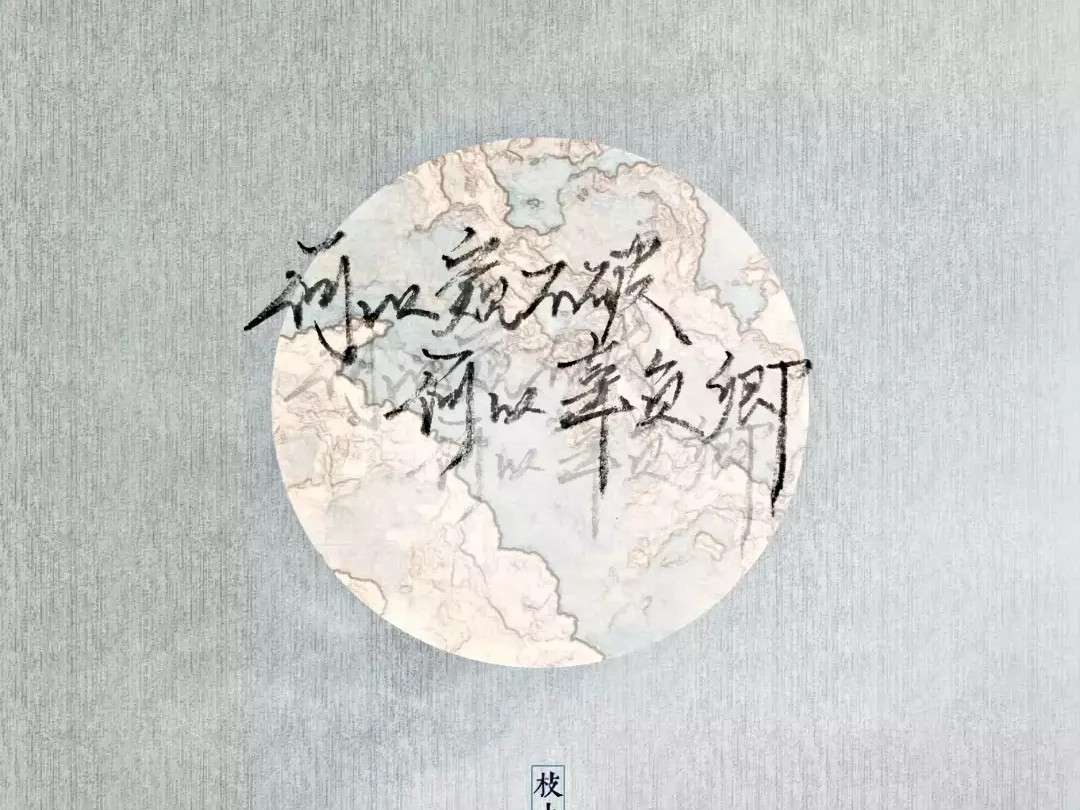 何以窥不破
何以辜负卿
枝